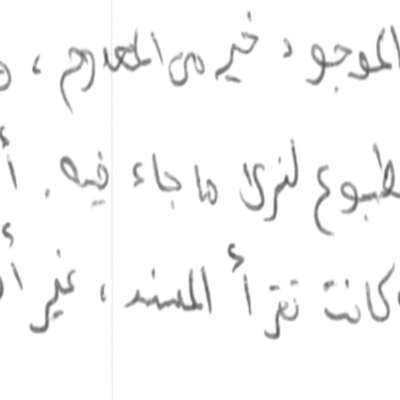 الموجود خير من المعدوم ،
طبوع لنرى ما جاء فيه . أ
كانت تقرأ المسند ، غير أ